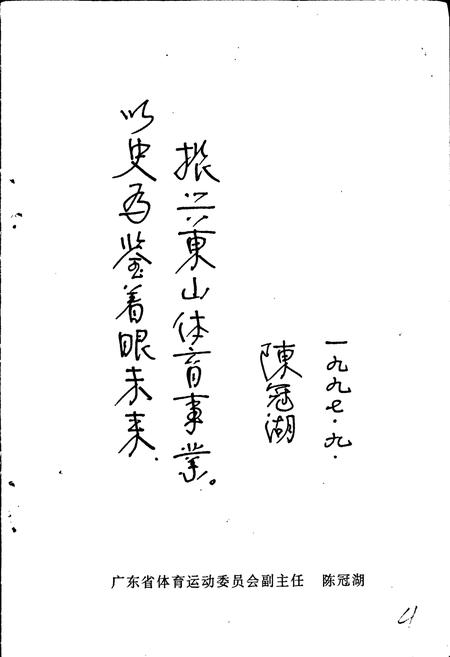 以史为鉴着眼未来
振兴東山体育事业。
陳冠湖
一九九七.九.
广东省体育运动委员会副主任 陈冠湖
4